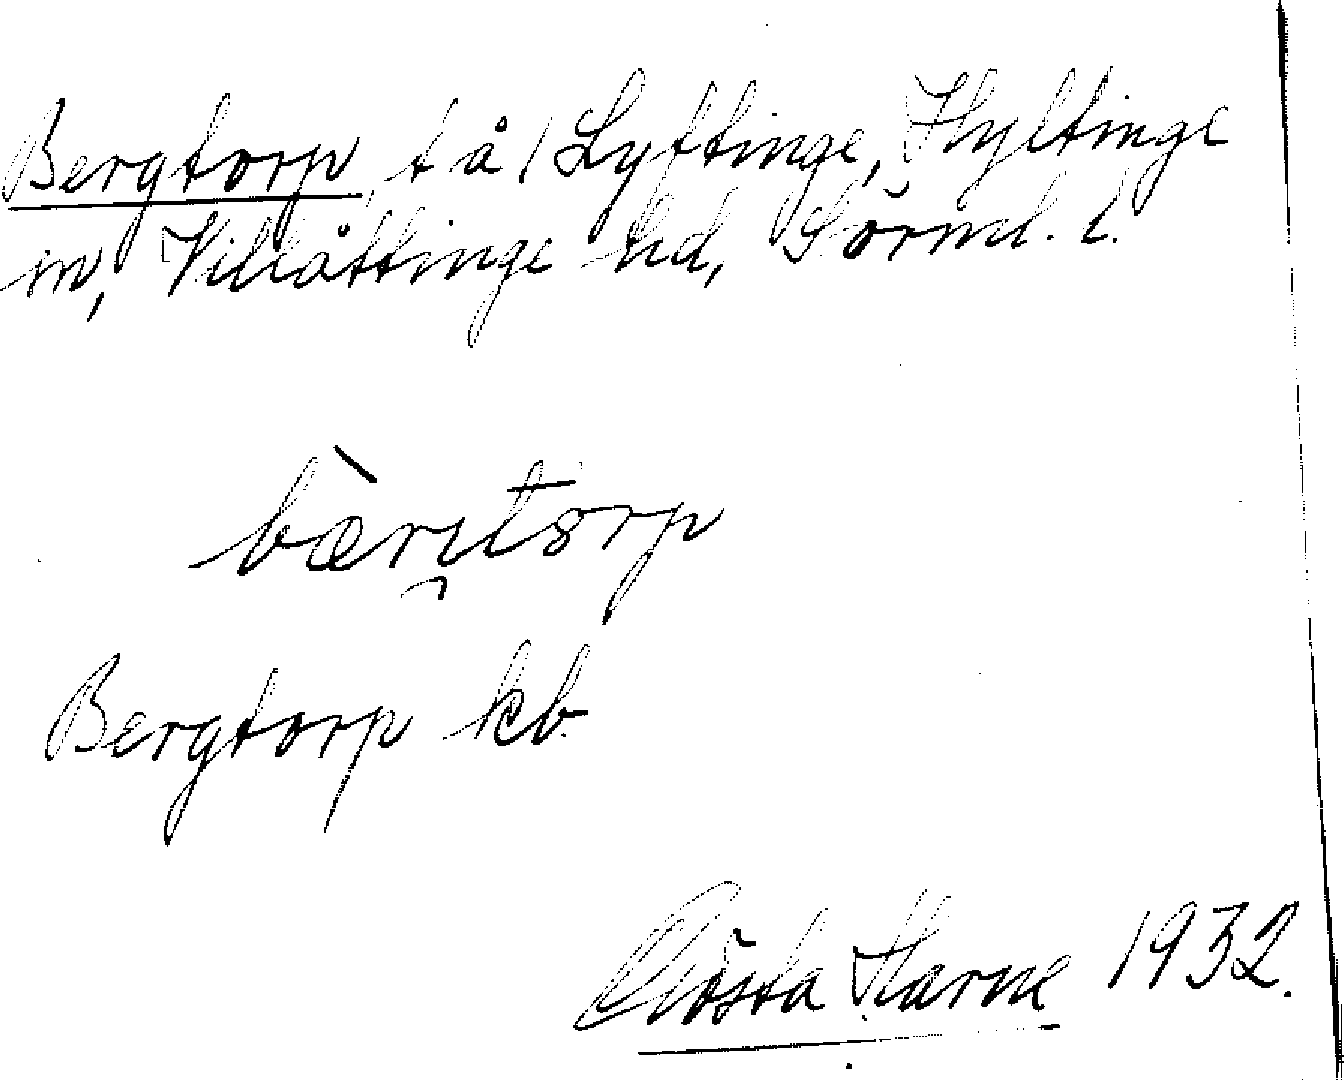 Bergtorp, t å / Lyttinge, Hyltinge
sn, Villåttinge hd, Sörml. l.
bæ̀rɪtorp
Bergtorp kb
Gösta Harne 1932.